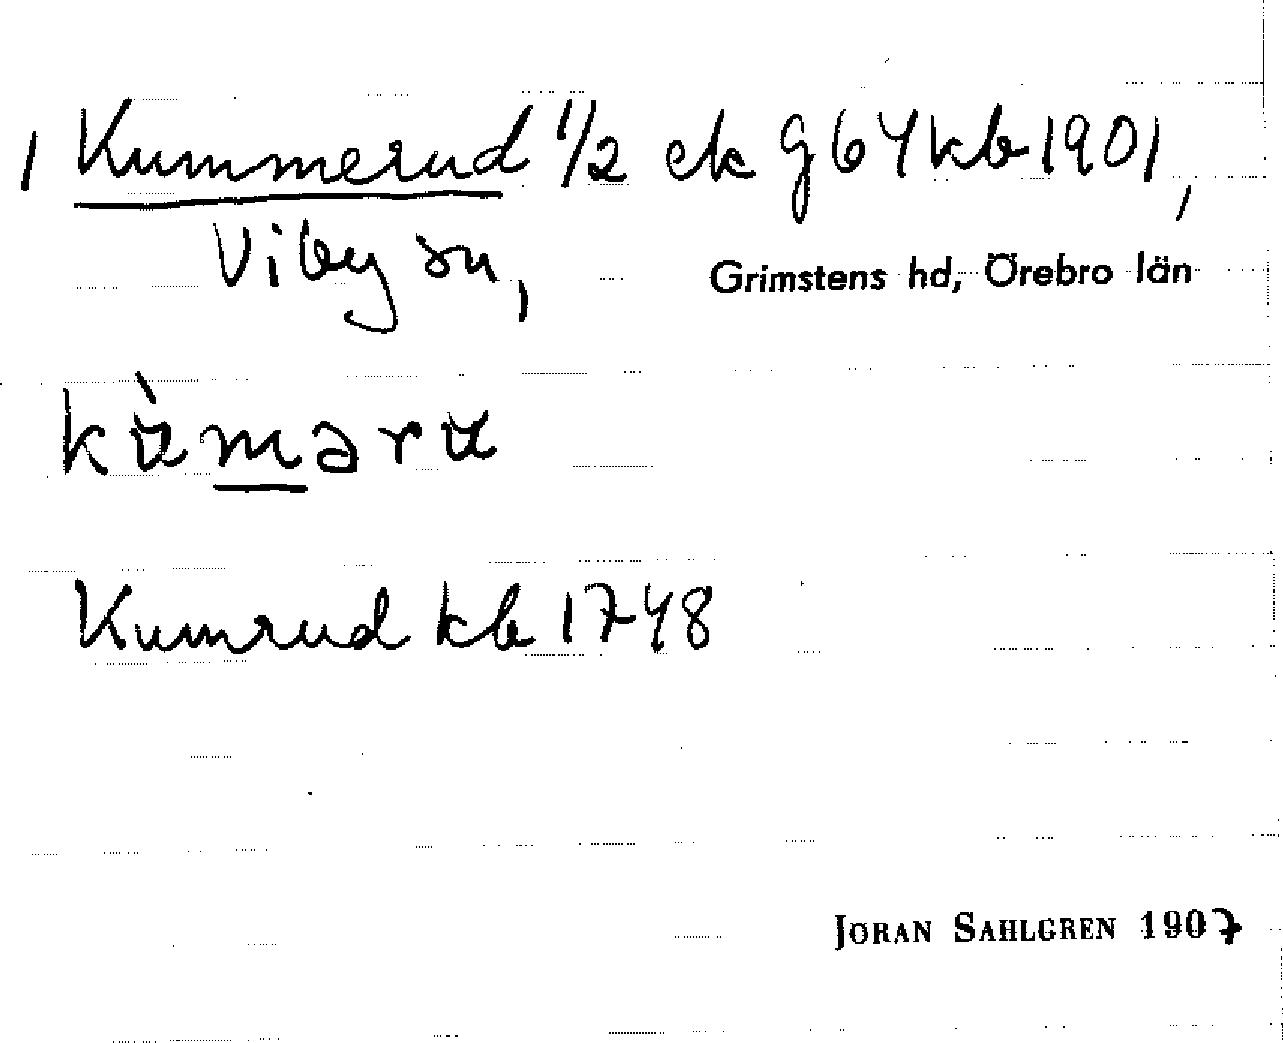 1 Kummerud 1/2 ek g64 kb 1901,
Viby sn, Grimstens hd, Örebro län
kùmǝru
Kumrud kb 1748
JORAN SAHLGREN 1907